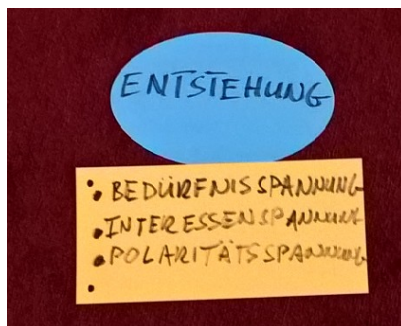 ENTSTEHUNG
• BEDÜRFNISSPANNUNG
• INTERESSENSPANNUNG
• POLARITÄTSSPANNUNG
•